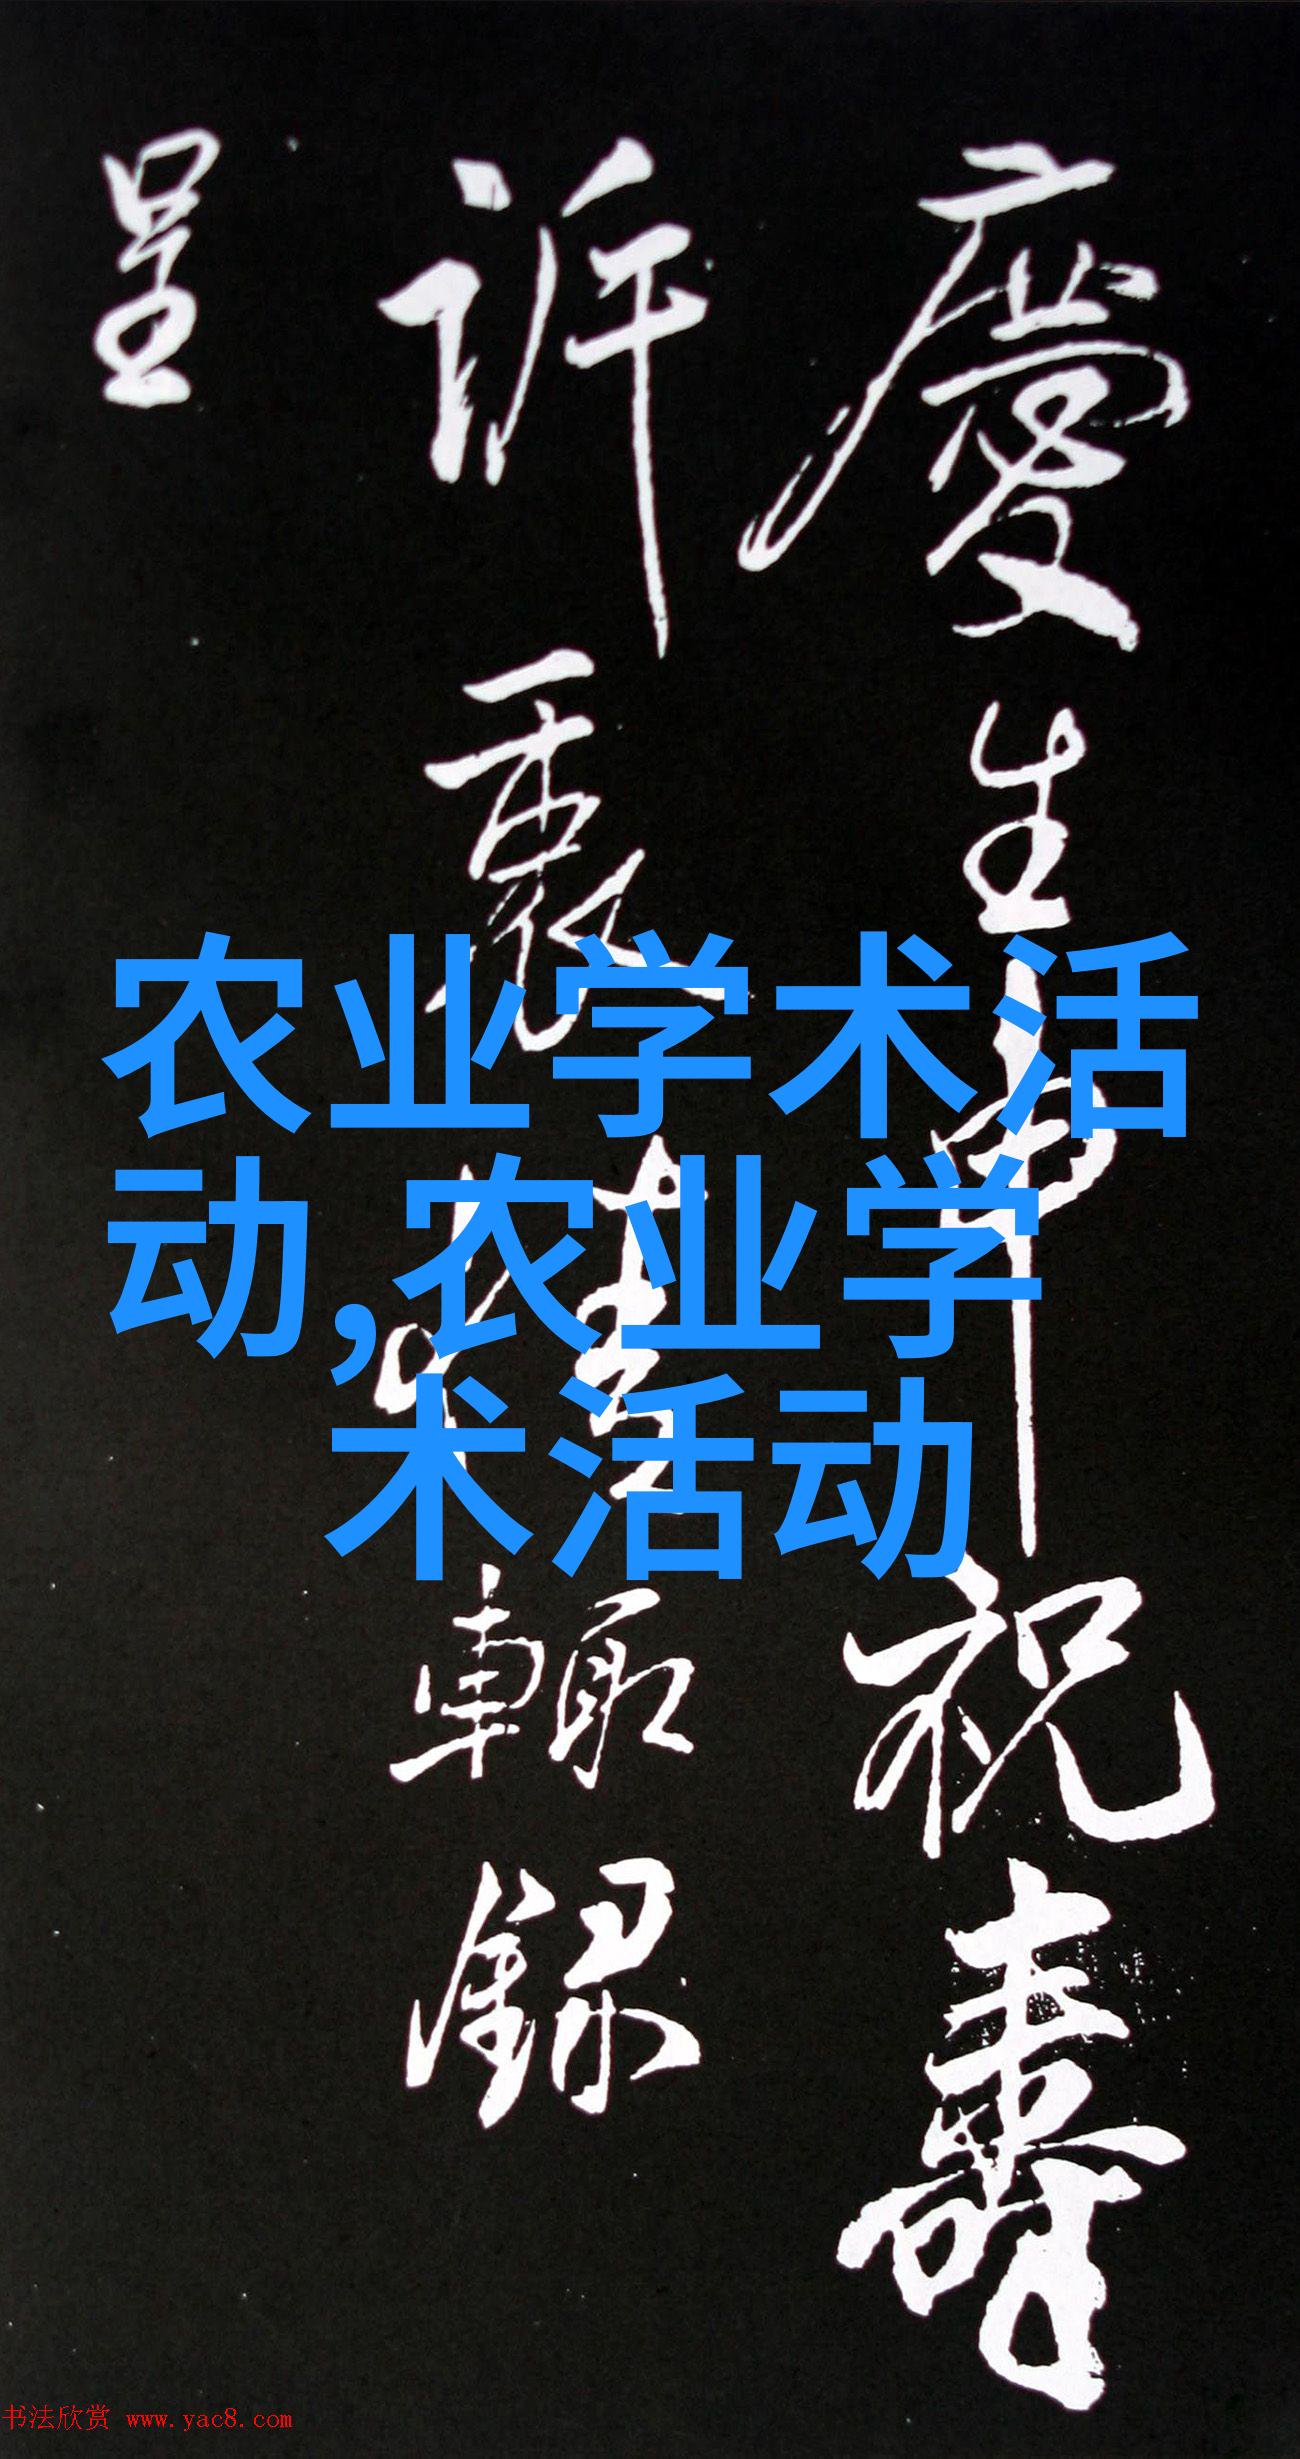 慶生申祝壽
訴衷情輒録
呈
农业学术活
动,农业学
术活动
书法欣赏 www.yac8.com